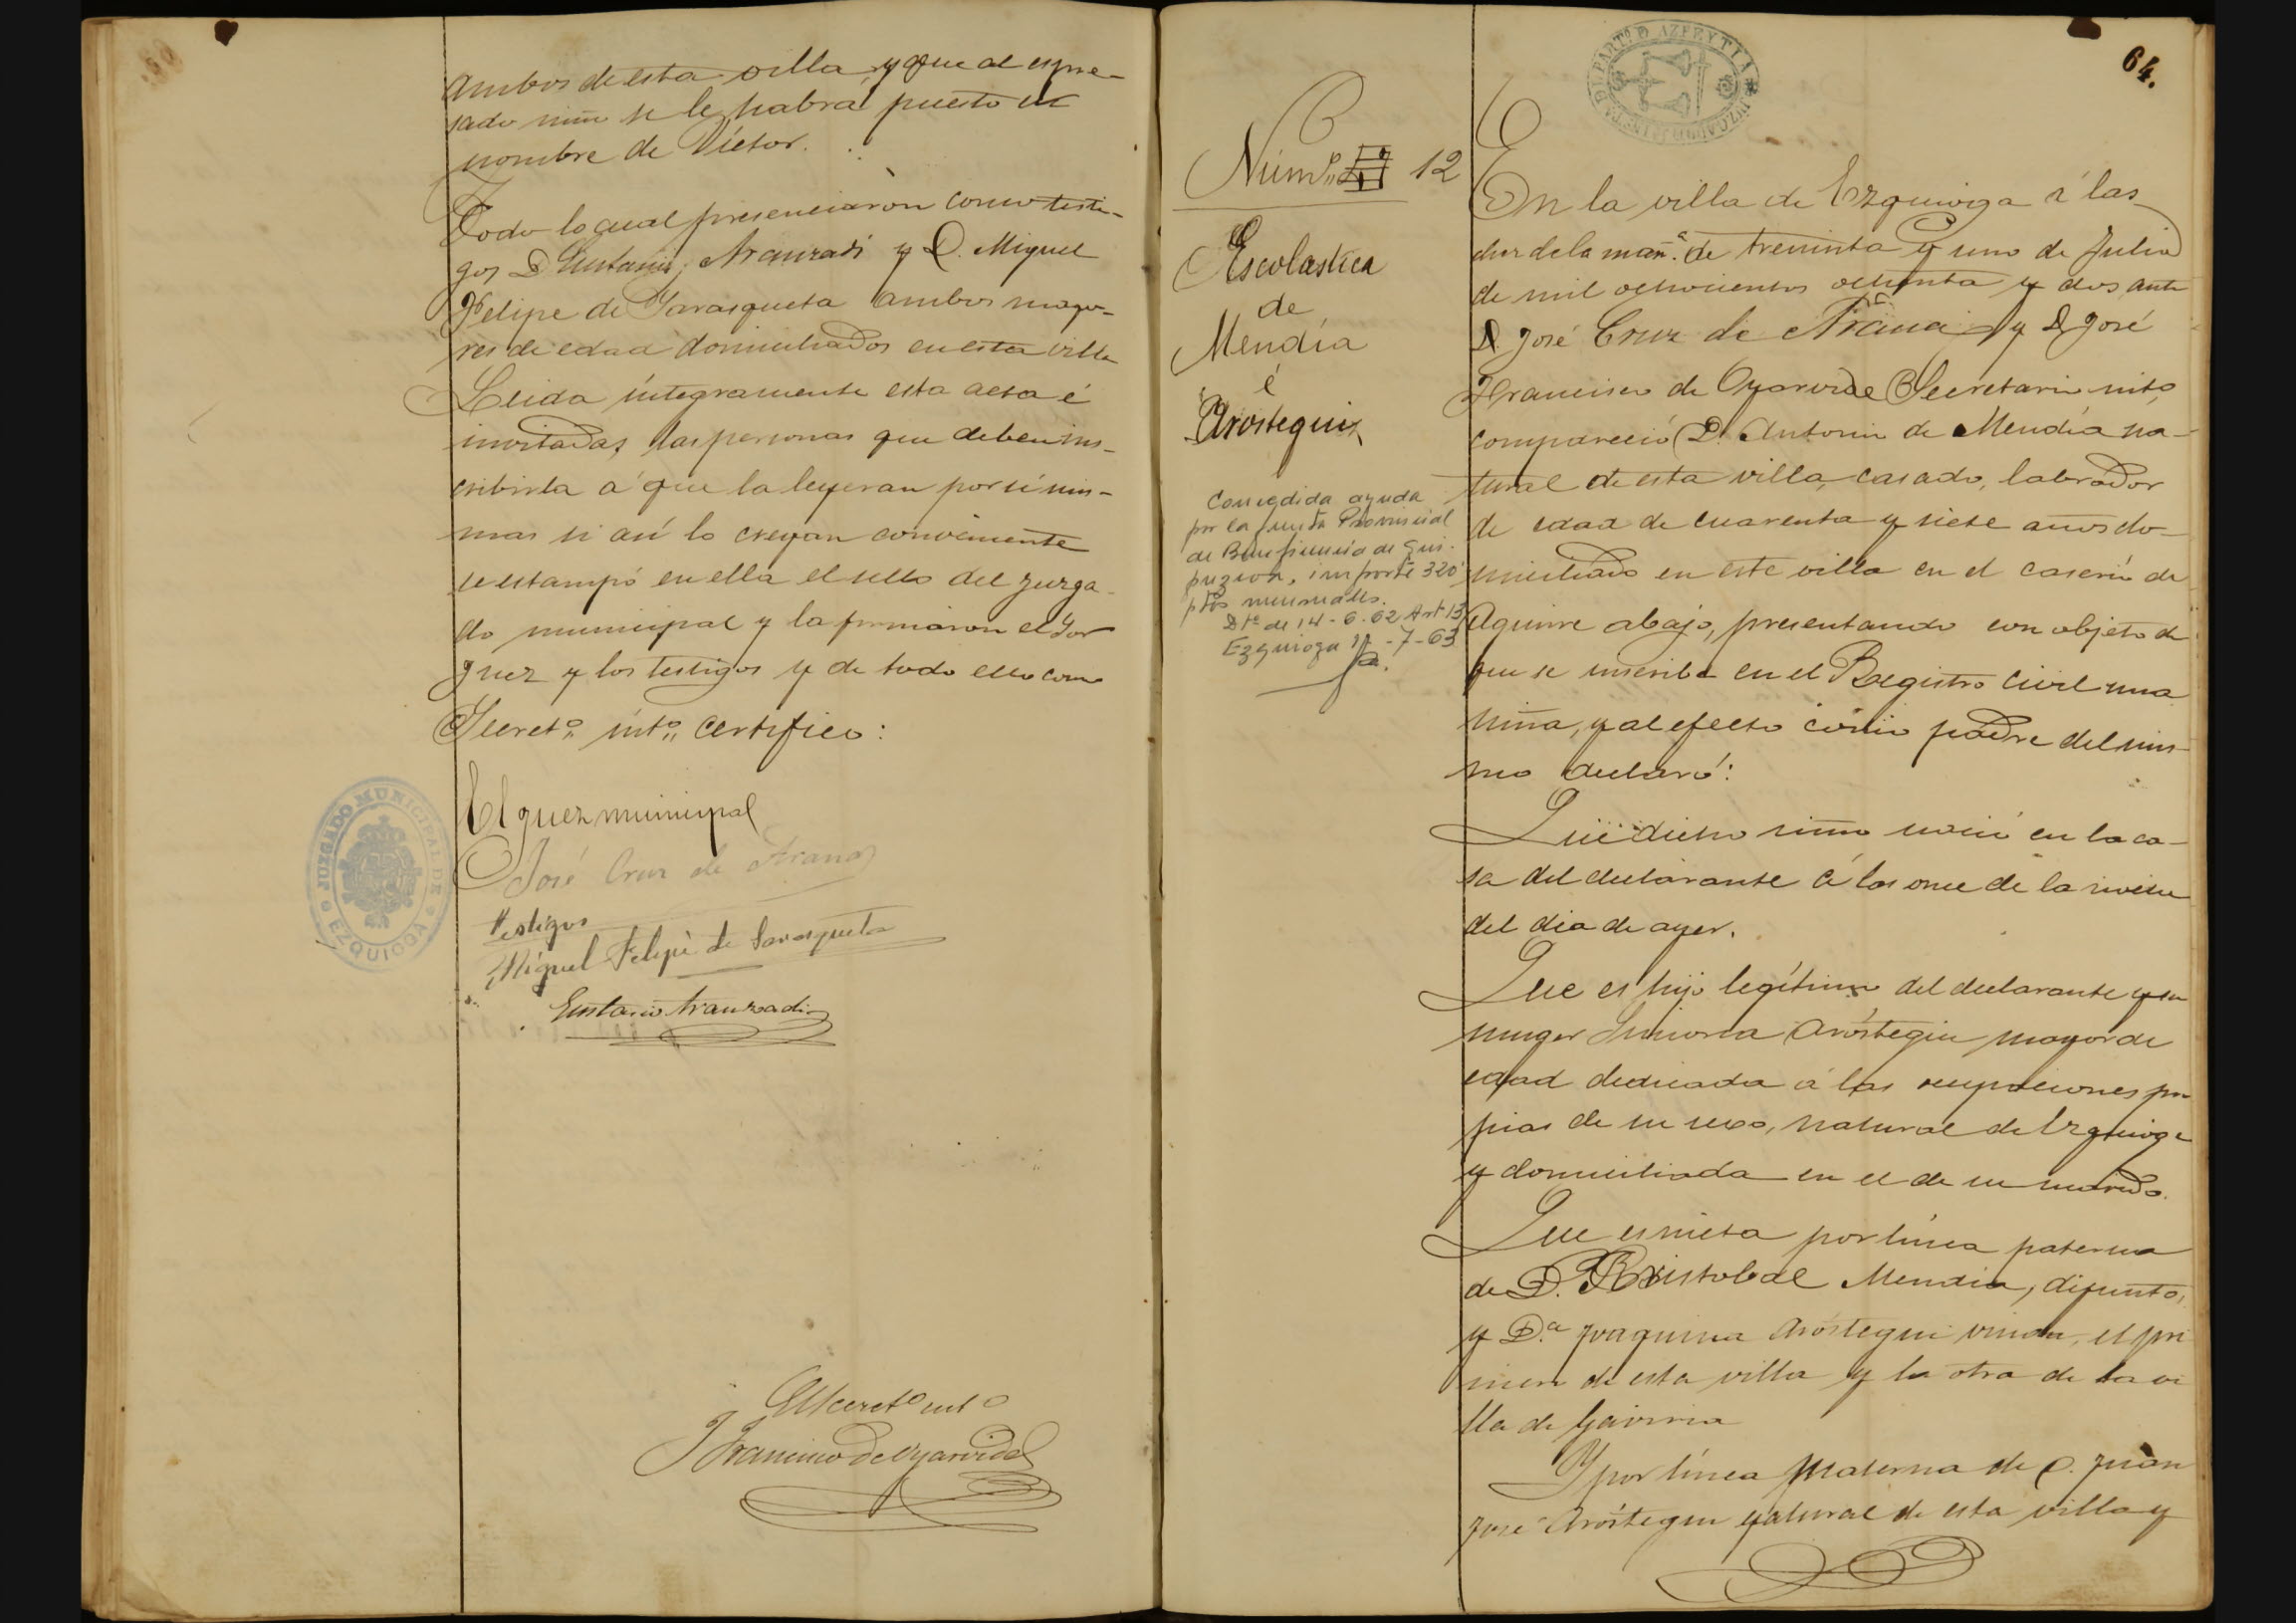 ambos de esta villa y que al espre-
sado niño se le habrá puesto el
nombre de Víctor.
Todo lo cual presenciaron como testi-
gos D. Eustasio Aranzadi y D. Miguel
Felipe de Sarasqueta ambos mayo-
res de edad domiciliados en esta villa
Leida íntegramente esta acta é
invitadas las personas que deben sus-
cribirla á que la leyeran por sí mis-
mas si así lo creyan conveniente
se estampó en ella el sello del Juzga-
do municipal y la firmaron el Sor
Juez y los testigos y de todo ello como
Secretº intº certifico:
El Juez municipal
José Cruz de Arana
Testigos
Miguel Felipe de Sarasqueta
Eustasio Aranzadi
JUZGADO MUNICIPAL DE EZQUIOGA
El Secretº intº
Francisco de Oyarvide
64.
JUZGADO DE 1ª INSTª DEL PARTº D AZPEYTIA
Númº 12
Escolastica
de
Mendía
é
Arostegui
Concedida ayuda
por la Junta Provincial
de Beneficencia de Gui-
puzcoa, importe 320
ptas mensuales.
Dtº de 14-6-62 Art 13
Ezquioga -7-63
En la villa de Ezquioga á las
diez de la mañª de treninta y uno de Julio
de mil ochocientos ochenta y dos ante
D. José Cruz de Arana y D José
Francisco de Oyarvide Secretario intº
compareció D. Antonio de Mendía na-
tural de esta villa, casado, labrador
de edad de cuarenta y siete años do-
miciliado en este villa en el caserío de
Aguirre abajo, presentando con objeto de
que se inscriba en el Registro civil una
niña, y al efecto como padre del mis-
mo declaró:
Que dicho niño nació en la ca-
sa del declarante á las once de la noche
del dia de ayer.
Que es hijo legítimo del declarante y su
muger Aróstegui mayor de
edad dedicada á las ocupaciones pro
pias de su sexo, natural de Ezquioga
y domiciliada en el de su marido.
Que es nieta por línea paterna
de D. Cristobal Mendia, difunto,
y D.ª Joaquina Aróstegui viuda, el pri
mero de esta villa y la otra de la vi
lla de Gaviria
Y por línea materna de D. Juan
José Aróstegui natural de esta villa y